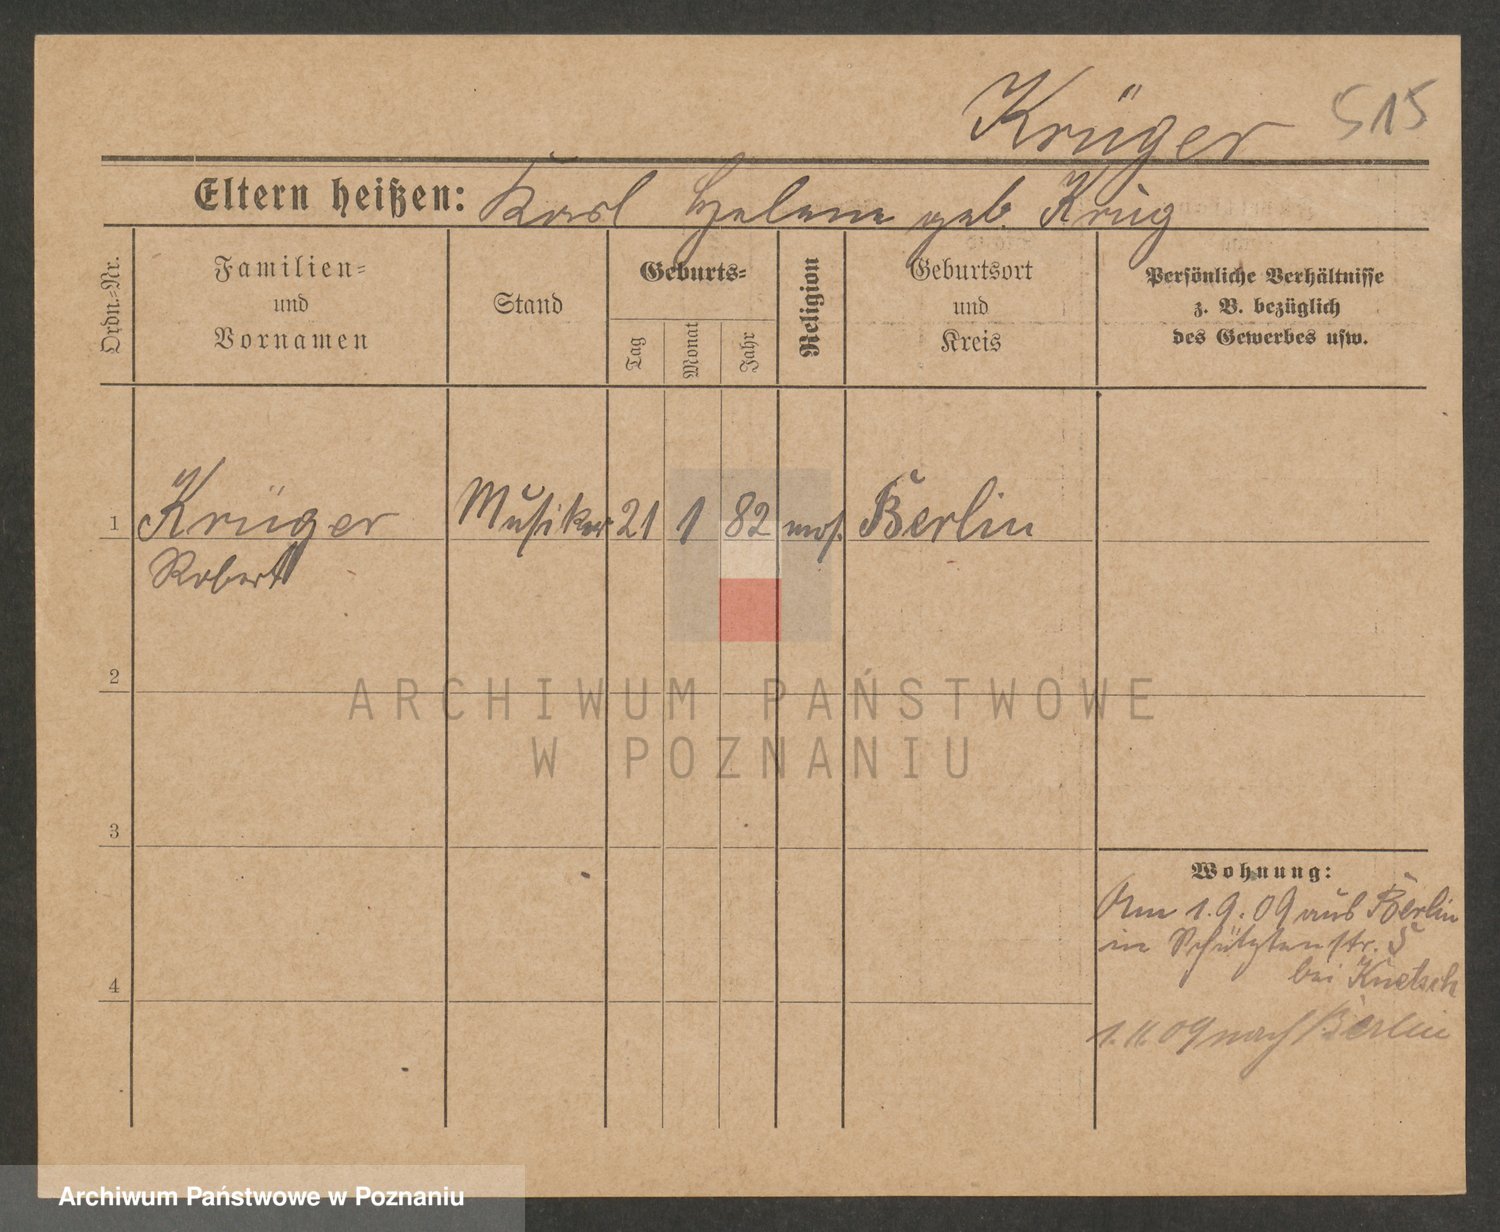 Krüger 515
Eltern heißen: Karl Helene geb. Krug
Ordn.-Nr.
Familien-
und
Vornamen
Stand
Geburts-
Tag
Monat
Jahr
Religion
Geburtsort
und
Kreis
Persönliche Verhältnisse
z. B. bezüglich
des Gewerbes usw.
1 Krüger Musiker 21 1 82 mos. Berlin
Robert
2
ARCHIWUM PAŃSTWOWE
W POZNANIU
3
Wohnung:
Am 1.9.09 aus Berlin
in Schützenstr. 5
bei Knetsch
4
1.11.09 nach Berlin
Archiwum Państwowe w Poznaniu